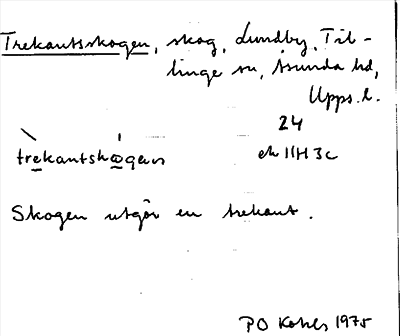 Trekantsskogen, skog, Lundby, Til-
linge sn, Åsunda hd,
Upps. l.
24
ek 11H 3c
trekantskogen
Skogen utgör en trekant.
PO 1975